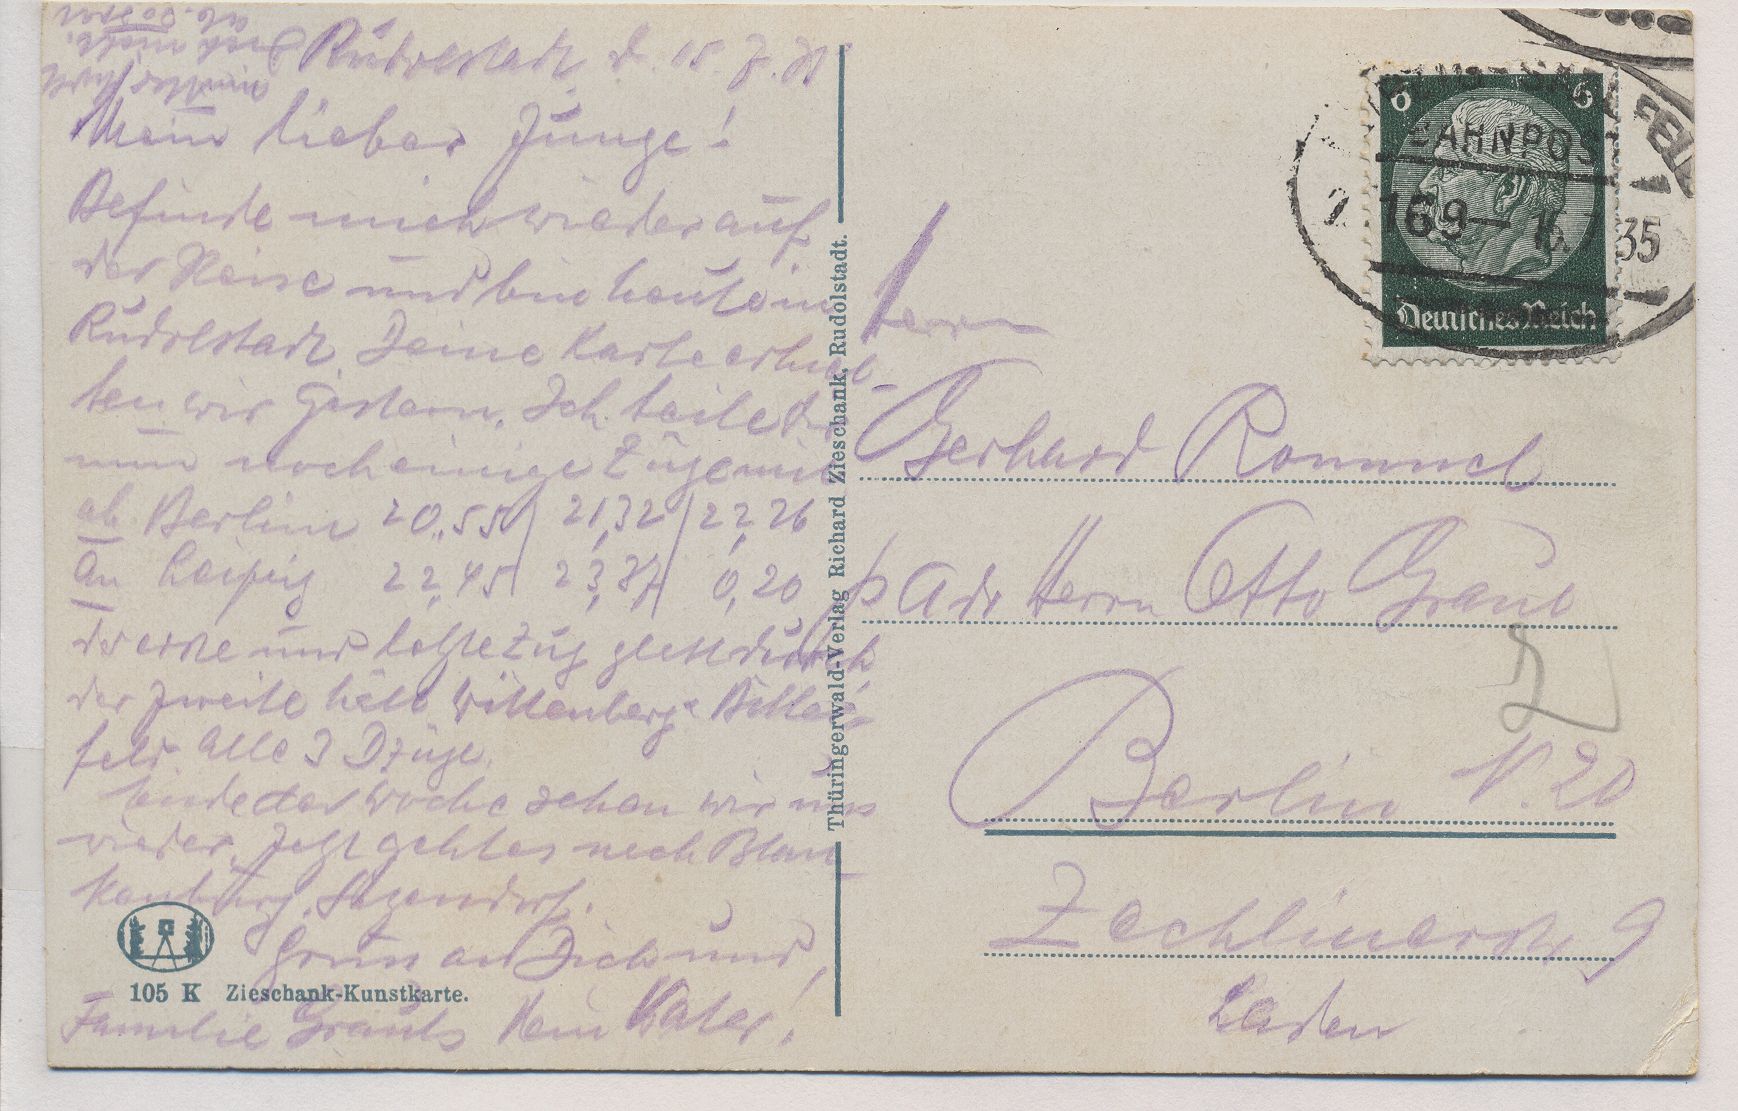 Rudolstadt d. 15.7.35
Mein lieber Junge!
Befinde mich wieder auf
der Reise und bin heute in
Rudolstadt. Deine Karte erhiel-
ten wir Gestern. Ich teile Dir
nun noch einige Züge mit
ab Berlin 20,55 / 21,32 / 22,26
an Leipzig 22,45 / 23,37 / 0,20
der erste und letzte Zug geht durch
der zweite hält Wittenberg Bitter-
feld. Alle 3 D Züge.
Ende der Woche sehen wir uns
wieder. Jetzt geht es nach Blan
kenburg,
Gruß an Dich und
Familie Grauls Dein Vater!
105 K Zieschank-Kunstkarte.
Thüringerwald-Verlag Richard Zieschank, Rudolstadt.
6 6
Deutsches Reich
BAHNPOST
169
35
Herrn
Gerhard Rommel
p Adr Herrn Otto Graul
Berlin N. 20
Zechlinerstr 9
Laden